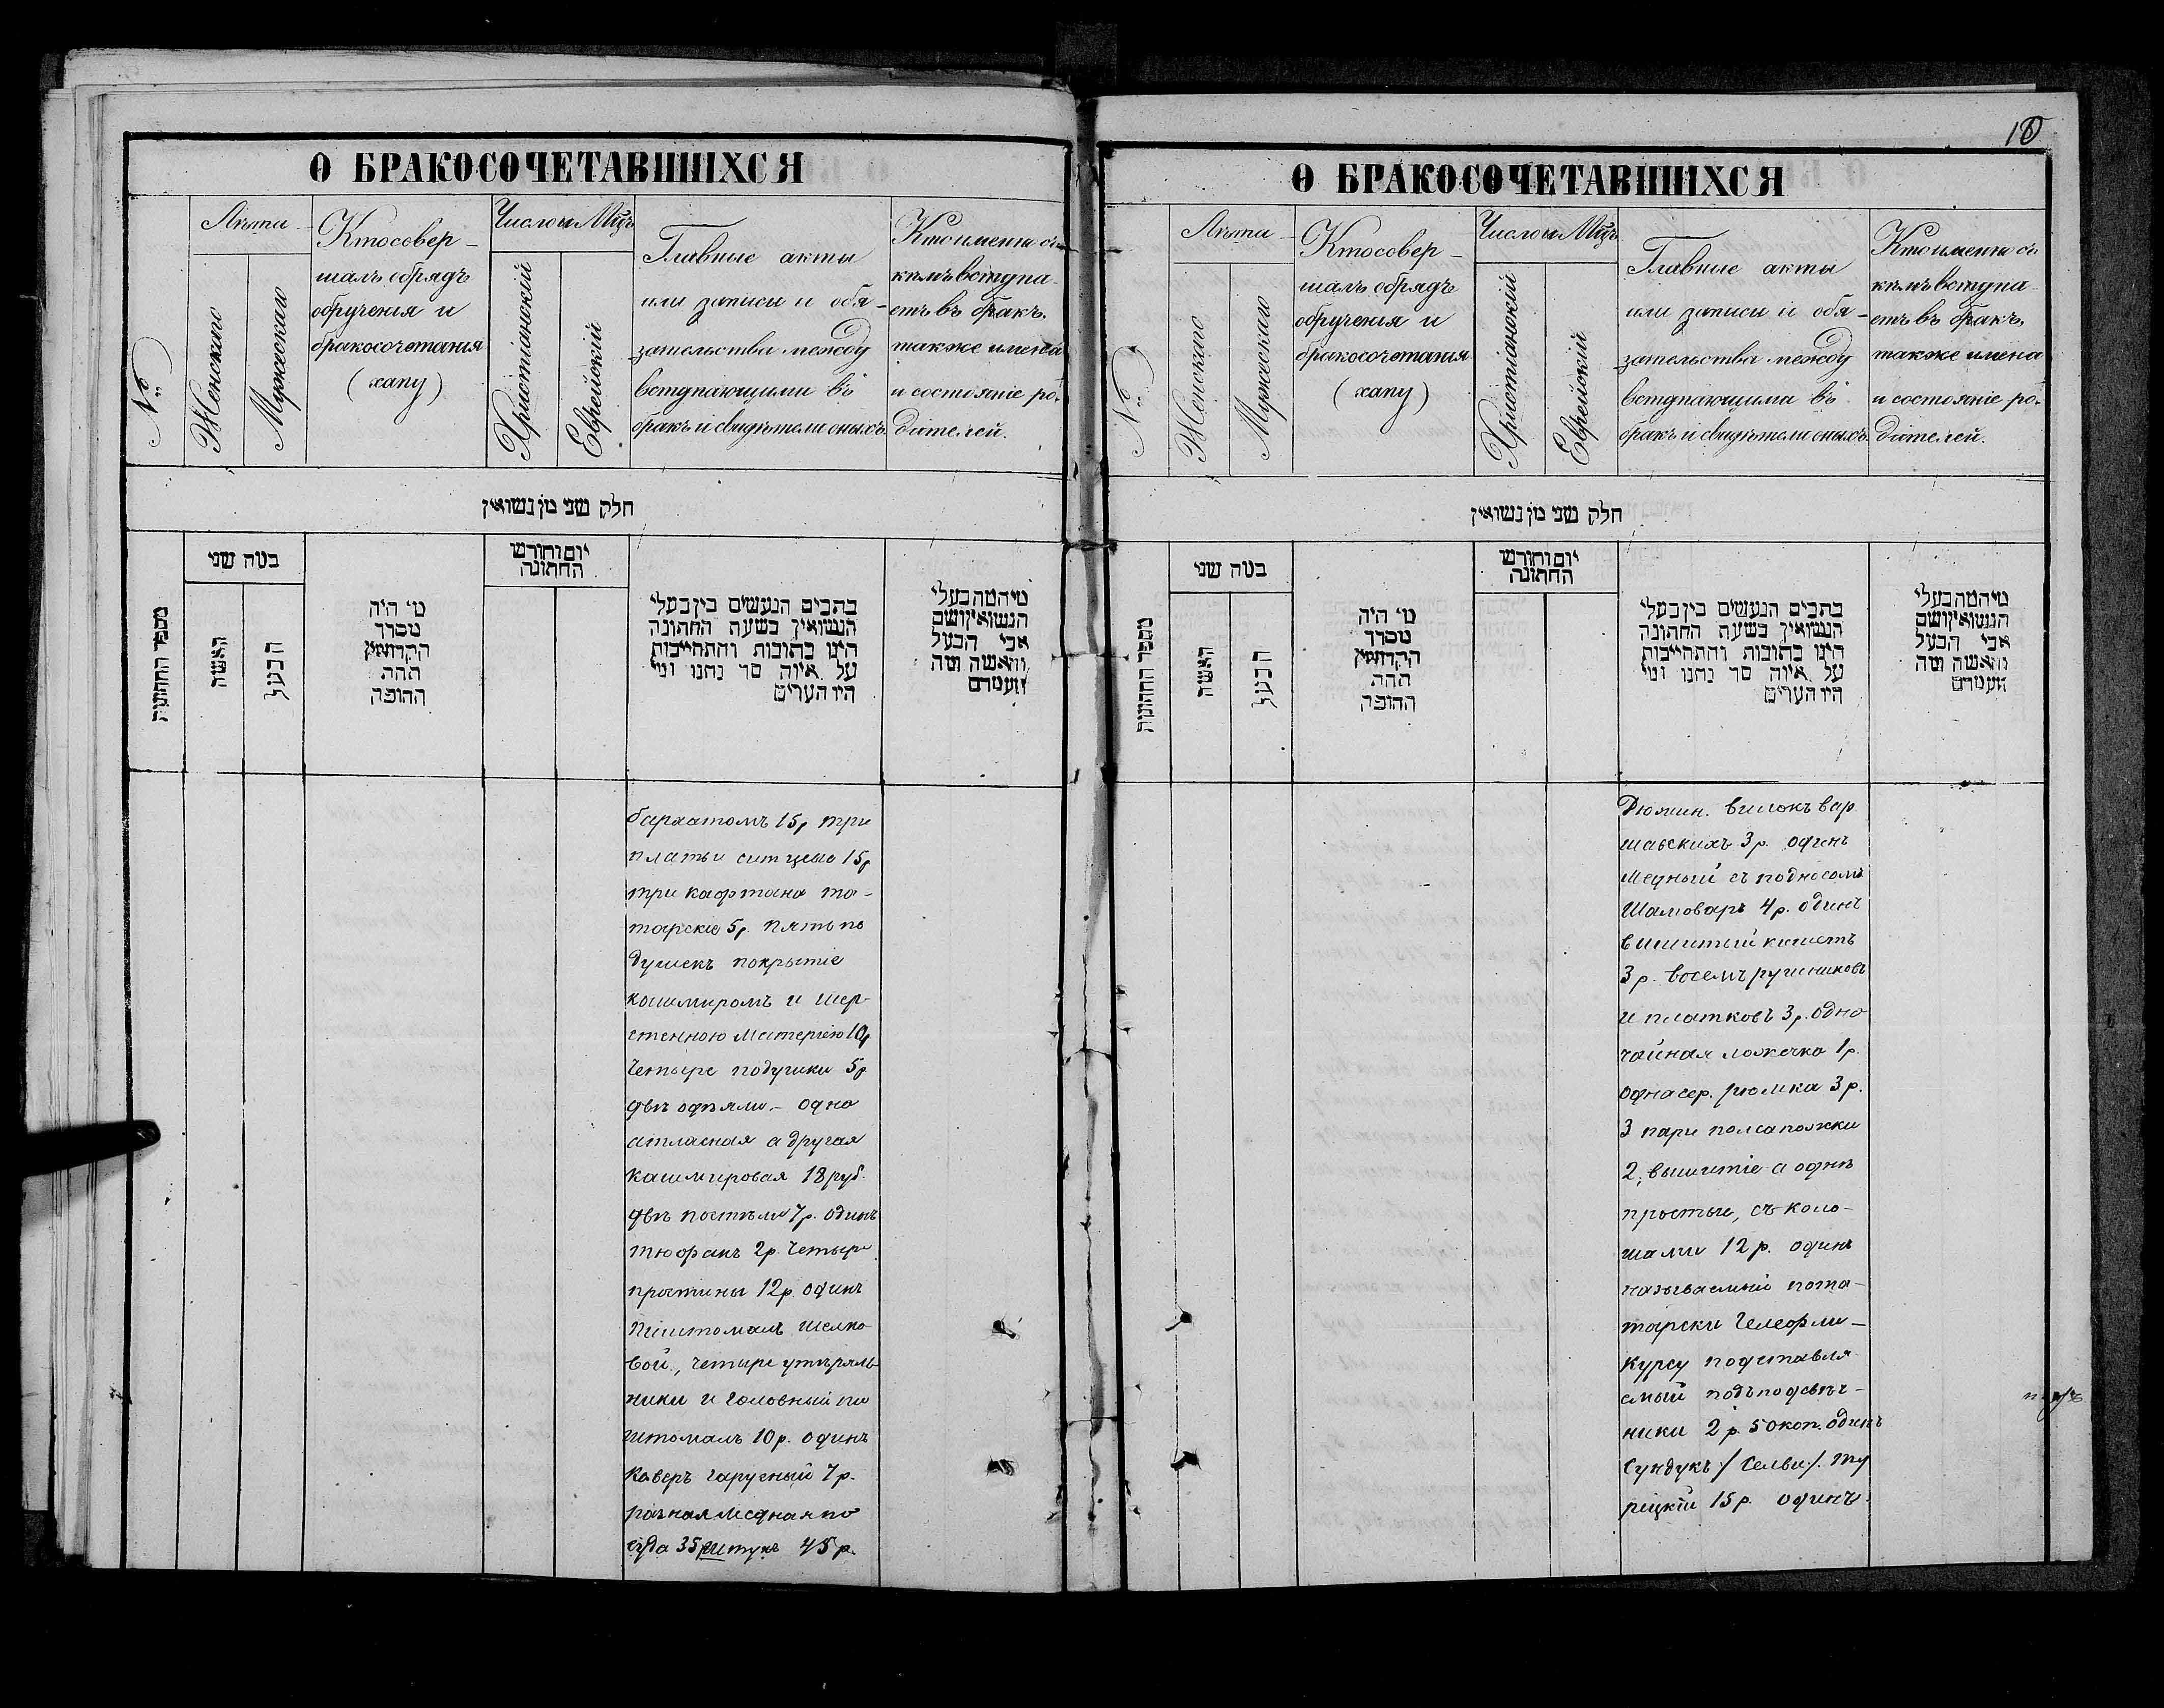 О БРАКОСОЧЕТАВШИХСЯ
№
Лѣта
Женскаго
Мужескаго
Кто совер-
шалъ обрядъ
обрученія и
бракосочетанія
(хапу)
Число и Мцъ
Христіанскій
Еврейскій
Главные акты
или записи и обя-
зательства между
вступающими въ
бракъ и свидѣтели оныхъ.
Кто именно съ
кѣмъ вступа-
етъ въ бракъ.
также имена
и состояніе ро-
дителей.
חלק שני מן נשואין
מספר החתונות
כמה שני
האשה
הבעל
מי היה
מסדר
הקדושין
תחת
החופה
יום וחודש
החתונה
כתבים הנעשים בין בעלי
הנשואין בשעת החתונה
היינו כתובות והתחייבות
על איזה סך נתנו ומי
היו העדים
מי המה בעלי
הנשואין ושם
אבי הבעל
והאשה ומה
מעמדם
бархатомъ 15р три
платьи ситцевые 15р
три кафтана та-
тарскіе 5р. пять по
душекъ покрытіе
кашмиромъ и шер-
стенною матеріею 10р
Четыре подушки 5р
двѣ одѣяли - одна
атласная а другая
кашмировая 18 руб.
двѣ постѣли 7р. одинъ
тюфакъ 2р. Четыре
простины 12р. одинъ
пештомалъ шелко
вой, четыре утѣраль-
ники и головный пе
штомалъ 10р. одинъ
Каверъ гарусный 7р.
разная медная по
суда 35 штукъ 45р.
18
О БРАКОСОЧЕТАВШИХСЯ
№
Лѣта
Женскаго
Мужескаго
Кто совер-
шалъ обрядъ
обрученія и
бракосочетанія
(хапу)
Число и Мцъ
Христіанскій
Еврейскій
Главные акты
или записи и обя-
зательства между
вступающими въ
бракъ и свидѣтели оныхъ.
Кто именно съ
кѣмъ вступа-
етъ въ бракъ.
также имена
и состояніе ро-
дителей.
חלק שני מן נשואין
מספר החתונות
כמה שני
האשה
הבעל
מי היה
מסדר
הקדושין
תחת
החופה
יום וחודש
החתונה
כתבים הנעשים בין בעלי
הנשואין בשעת החתונה
היינו כתובות והתחייבות
על איזה סך נתנו ומי
היו העדים
מי המה בעלי
הנשואין ושם
אבי הבעל
והאשה ומה
מעמדם
Дюжин. вилокъ вар
шавскихъ 3р. одинъ
Медный съ подносомъ
Шамоваръ 4р. одинъ
вишитый кисетъ
3р. восемъ рушниковъ
и платковъ 3р. одна
чайная ложечка 1р.
одна сер. рюмка 3р.
3 пари полсапожки
2, вышитіе а однѣ
простые, съ кало-
шами 12р. одинъ
называемый пота-
тарски
Курсу подставля
емый подъ подсвѣч-
ники 2р. 50 коп. одинъ
Сундукъ /Селви/. ту
рецкій 15р. одинъ